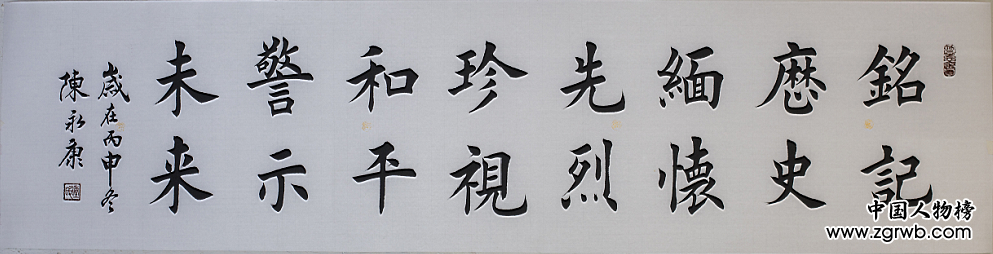 銘記
歷史
緬懷
先烈
珍視
和平
警示
未来
歲在丙申冬
陳永康
中国人物榜
www.zgrwb.com